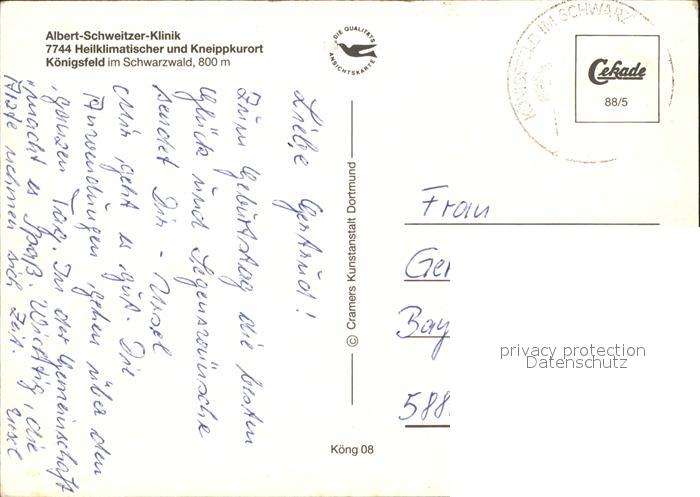 Albert-Schweitzer-Klinik
7744 Heilklimatischer und Kneippkurort
Königsfeld im Schwarzwald, 800 m
DIE QUALITÄTS
ANSICHTSKARTE
KÖNIGSFELD IM SCHWARZ
Cekade
88/5
Liebe Gertrud!
Zum Geburtstag die besten
Glück und Segenswünsche
sendet Dir - Ursel
Mir geht es gut. Die
Anwendungen gehen über den
ganzen Tag. In der Gemeinschaft
macht es Spaß. Wichtig, die
Ärzte nehmen sich Zeit.
© Cramers Kunstanstalt Dortmund
Köng 08
Frau
Ger
Bay
588
privacy protection
Datenschutz